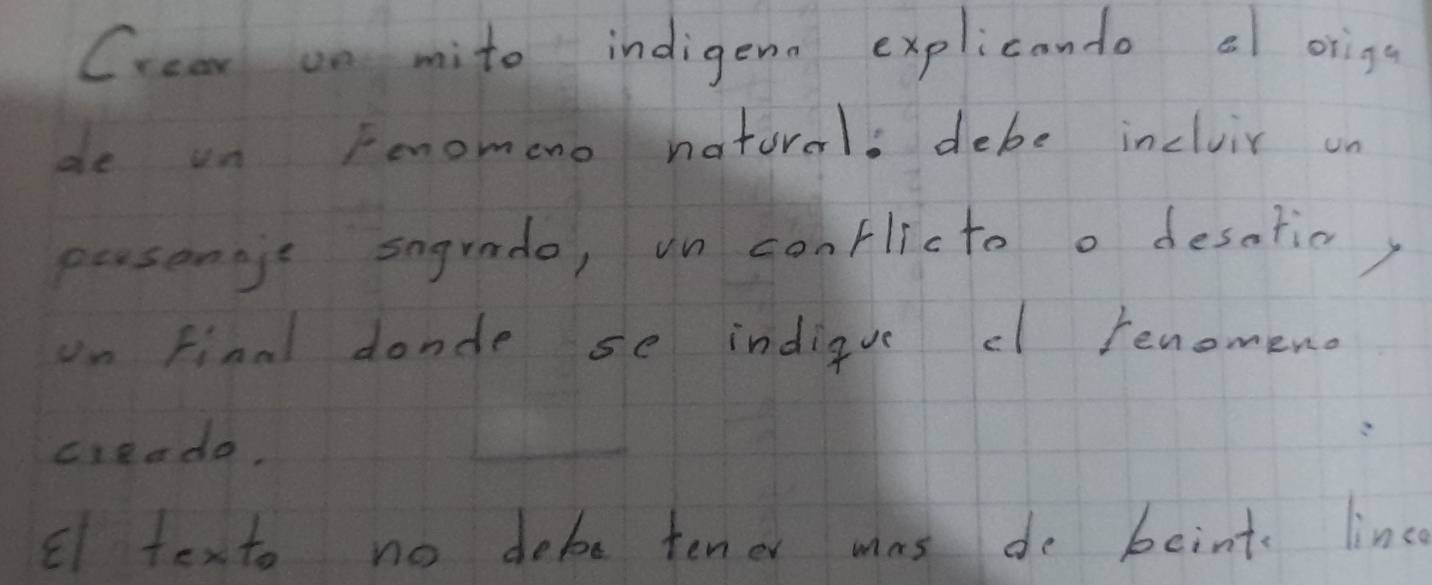 Crear un mito indigena explicando el orige
de un Fenomeno natural: debe incluir un
personaje sagrado, un conflicto o desafio y
un Final donde se indique el fenomeno
creado.
El texto no debe tener mas de beinte linea